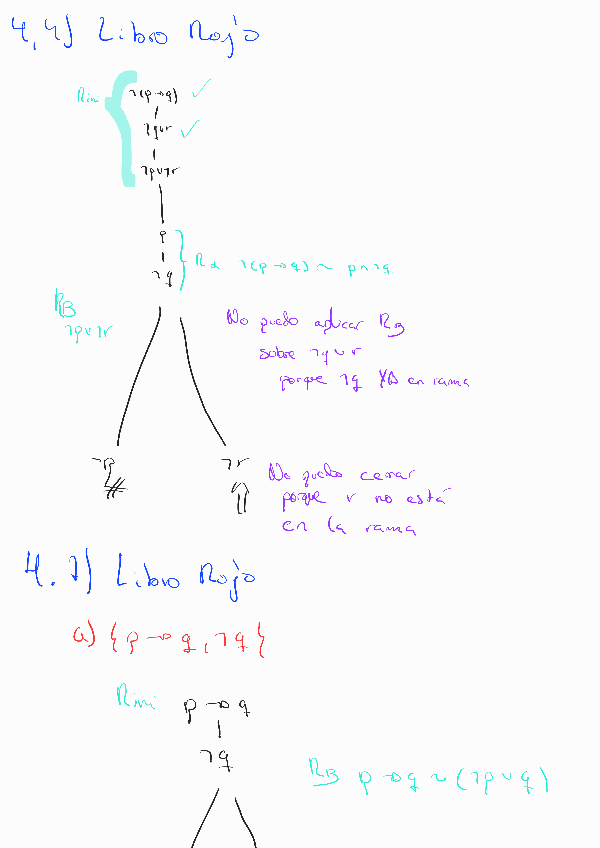 4,4) Libro Rojo
Rini ¬(p→q) ✓
¬q∨r ✓
¬p∨¬r
p
¬q
Rα ¬(p→q) ~ p∧¬q
Rβ
¬p∨¬r
No puedo aplicar Rβ
sobre ¬q∨r
porque ¬q YA en rama
¬p
#
¬r
⇑
No puedo cerrar
porque r no está
en la rama
4.7) Libro Rojo
a) {p→q, ¬q}
Rini p→q
¬q
Rβ p→q ~ (¬p∨q)